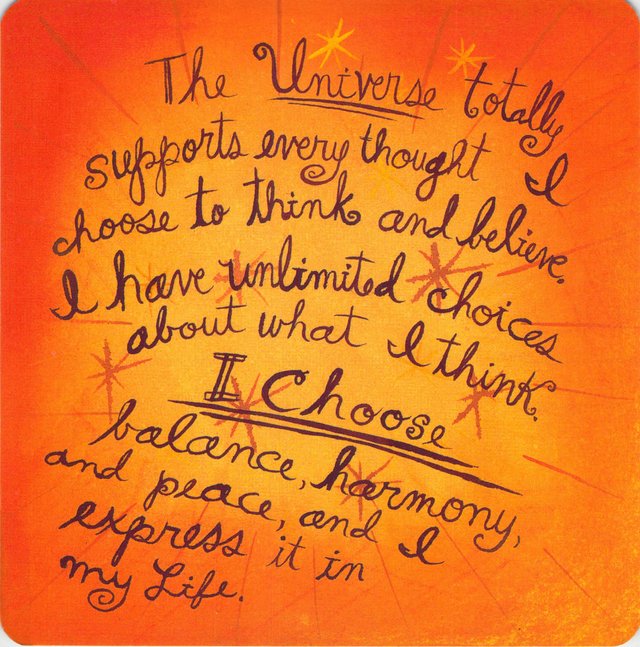 The Universe totally
supports every thought I
choose to think and believe.
I have unlimited choices
about what I think.
I Choose
balance, harmony,
and peace, and I
express it in
my Life.